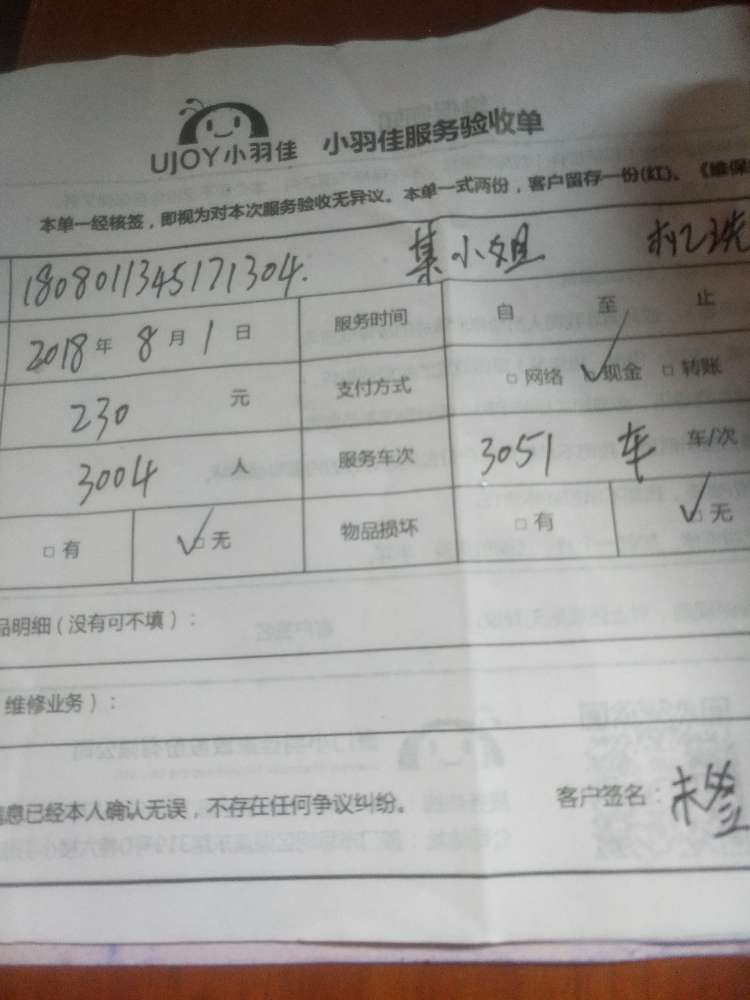 UJOY小羽佳 小羽佳服务验收单
本单一经核签，即视为对本次服务验收无异议。本单一式两份，客户留存一份(红)。《维保
1808011345171304. 某小姐
2018年 8月 1日 服务时间 自 至 止
230 元 支付方式 □网络 ☑现金 □转账
3004 人 服务车次 3051 车 车/次
□有 ☑无 物品损坏 □有 ☑无
品明细（没有可不填）：
维修业务）：
信息已经本人确认无误，不存在任何争议纠纷。 客户签名：未签